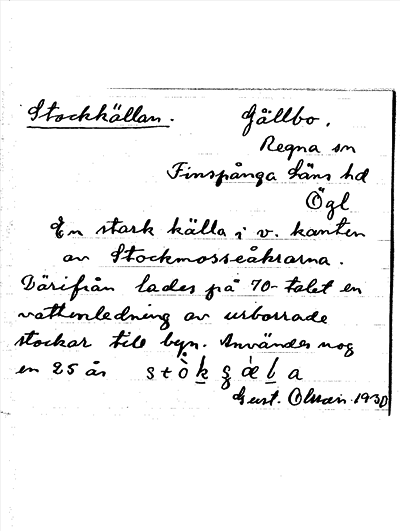 Stockkällan. Gällbo.
Regna sn
Finspånga läns hd
Ögl
En stark källa i v. kanten
av Stockmosseåkrarna.
Därifrån lades på 70-talet en
vattenledning av urborrade
stockar till byn. Användes nog
en 25 år
Gust. 1930